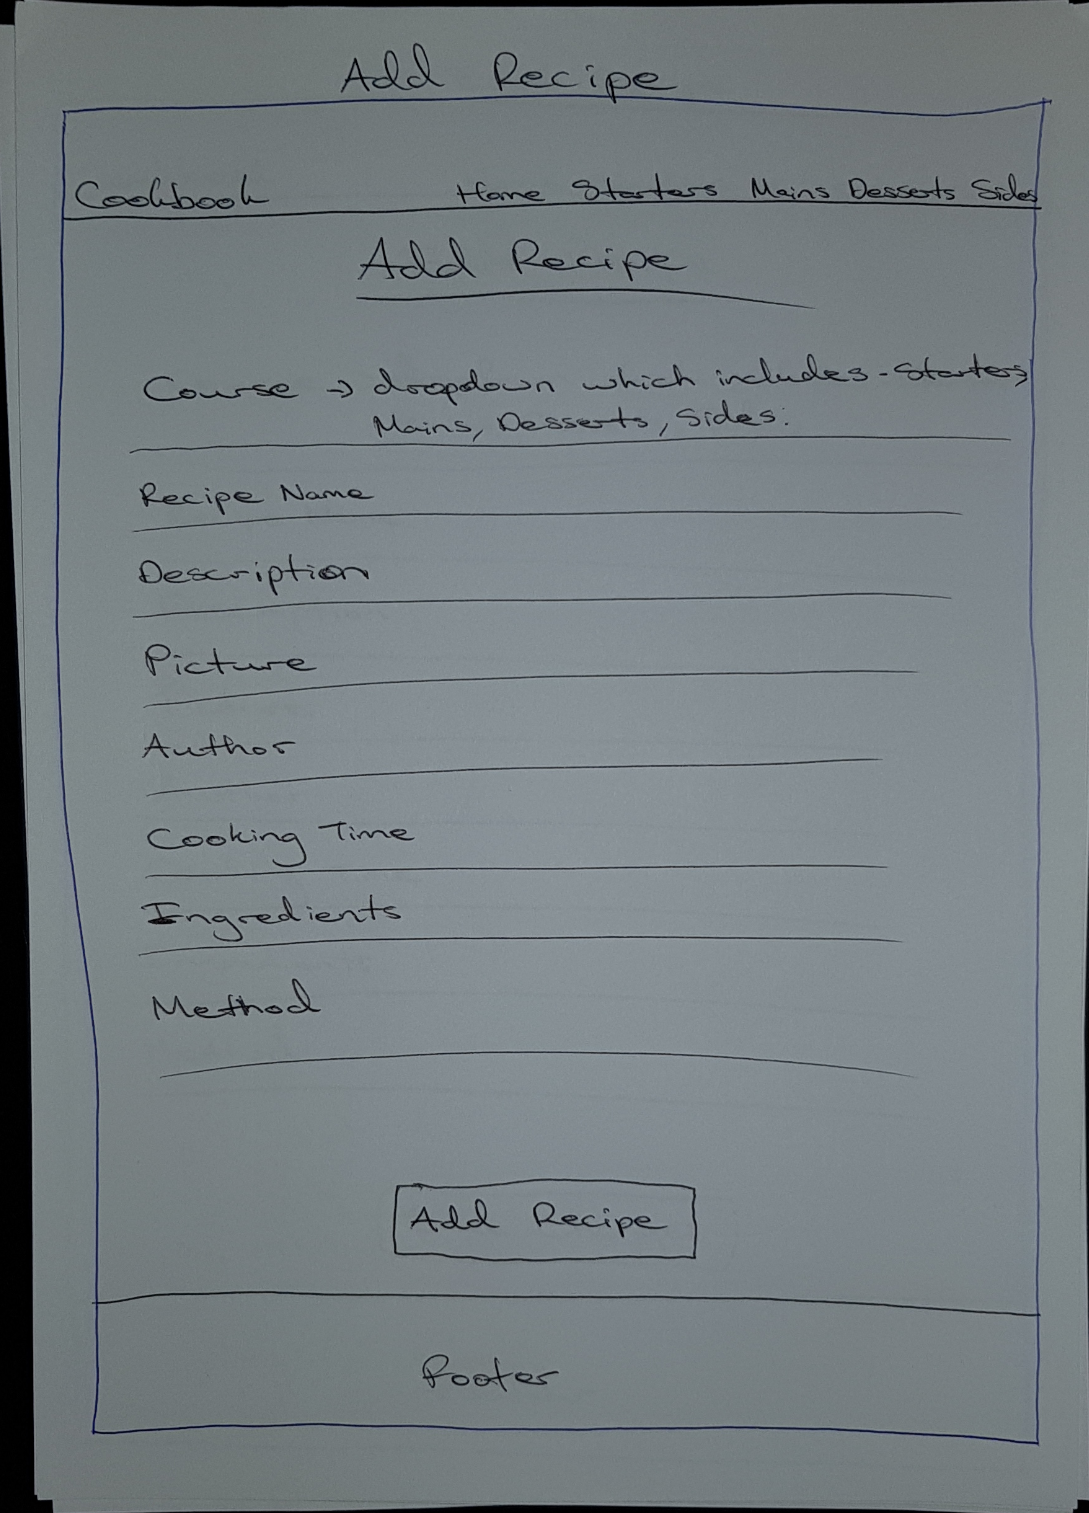 Add Recipe
Cookbook Home Starters Mains Desserts Sides
Add Recipe
Course → dropdown which includes - Starters,
Mains, Desserts, Sides.
Recipe Name
Description
Picture
Author
Cooking Time
Ingredients
Method
Add Recipe
Footer